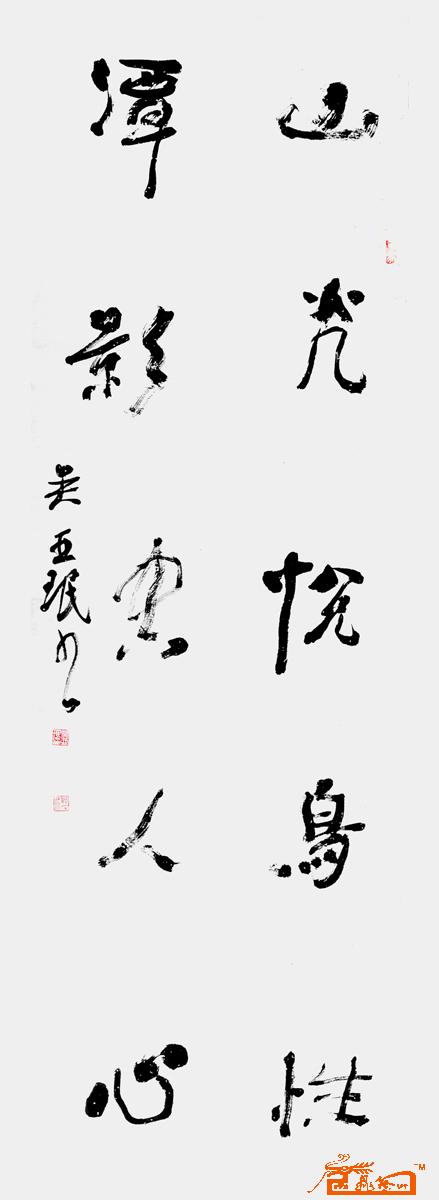 山光悦鸟性
潭影空人心
吴亚珉书